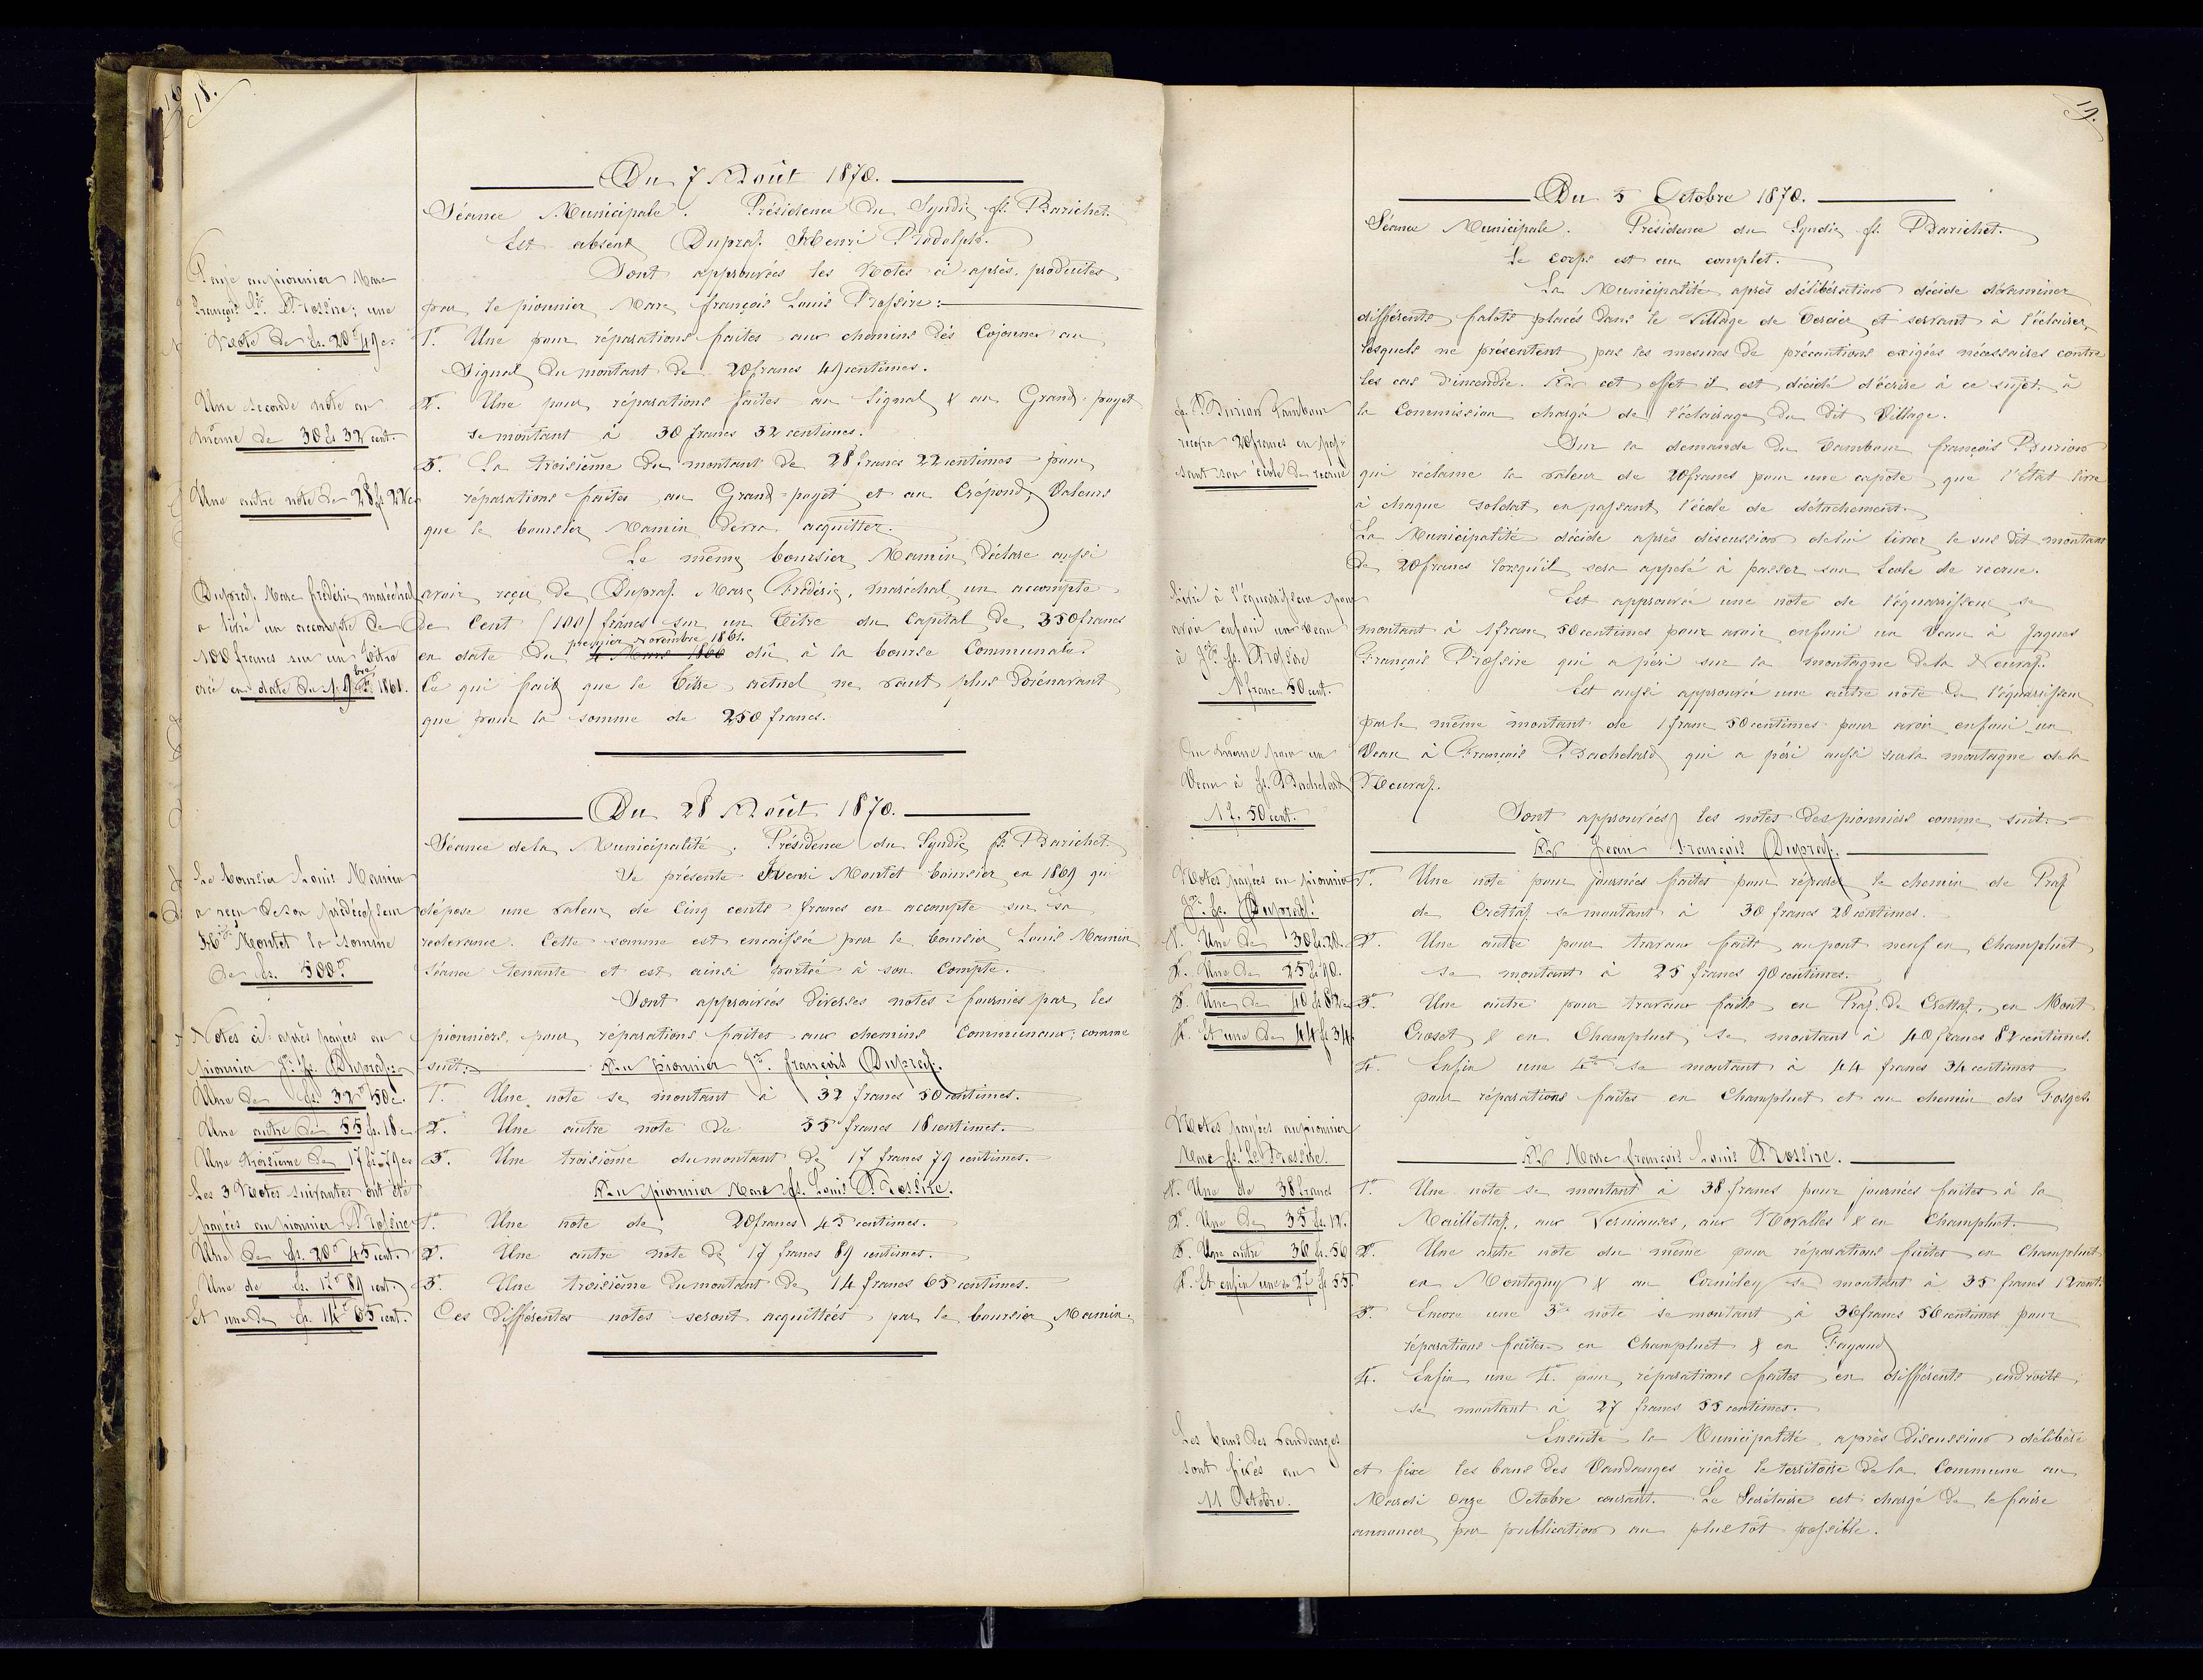 18.
Du 7 Août 1870.
Séance Municipale. Présidence du Syndic fs. Barichet.
Est absent Dupraz Henri Rodolphe.
Sont approuvées les Notes ci-après, produites
par le pionnier Marc françois Louis Rossire:
1°. Une pour réparations faites aux chemins dès Cojonnex au
Signal du montant de 20 francs 49 centimes.
2°. Une pour réparations faites au Signal & au Grand-puyet
se montant à 30 francs 32 centimes.
3°. La troisième du montant de 28 francs 22 centimes pour
réparations faites au Grand-puyet et au Crépond, Valeurs
que le boursier Mamin devra acquitter.
Le même boursier Mamin déclare aussi
avoir reçu de Dupraz Marc Frédéric, maréchal un accompte
de Cent (100) francs sur un Titre du Capital de 350 francs
premier Novembre 1861.
en date du 4 Mars 1860 dû à la bourse Communale.
Ce qui fait que le Titre actuel ne vaut plus dorénavant
que pour la somme de 250 francs.
Payé au pionnier Marc
François Ls. Rossire; une
Note de fs. 20 49 cs
Une seconde note au
même de 30 fs 32 cent.
Une autre note de 28 fs 22 cs
Dupraz Marc frédéric maréchal
a livré un accompte de
100 francs sur un Titre
créé en date du 1. 9bre 1861.
Du 28 Août 1870.
Séance de la Municipalité. Présidence du Syndic fs. Barichet.
Se présente Henri Montet boursier en 1869 qui
dépose une valeur de Cinq cents francs en accompte sur sa
redevance. Cette somme est encaissée par le boursier Louis Mamin
séance tenante et est ainsi portée à son Compte.
Sont approuvées diverses notes fournies par les
pionniers, pour réparations faites aux chemins Communaux; comme
suit: Au pionnier Jn. françois Dupraz.
1°. Une note se montant à 32 francs 50 centimes.
2°. Une autre note de 55 francs 18 centimes.
3°. Une troisième du montant de 17 francs 79 centimes.
Au pionnier Marc fs. Louis Rossire.
1°. Une note de 20 francs 45 centimes.
2°. Une autre note de 17 francs 89 centimes.
3°. Une troisième du montant de 14 francs 65 centimes.
Ces différentes notes seront acquittées par le boursier Mamin.
Le boursier Louis Mamin
a reçu de son prédécesseur
Hri Montet la somme
de fs. 500
Notes ci-après payées au
pionnier Jn. fs. Dupraz.
Une de fs. 32 50 c.
Une autre de 55 fs. 18 c
Une troisième de 17 fs 79 cs
Les 3 Notes suivantes ont été
payées au pionnier Rossire
Une de fs. 20 45 cent.
Une de fs. 17 89 cent.
Et une de fs. 14 65 cent.
19.
Du 5 Octobre 1870.
Séance Municipale. Présidence du Syndic fs. Barichet.
Le corps est au complet.
La Municipalité après délibération décide d'éxaminer
différents falots placés dans le Village de Cercier et servant à l'éclairer,
lesquels ne présentent pas les mesures de précautions exigées nécessaires contre
les cas d'incendie. A cet effet il est décidé d'écrire à ce sujet à
la Commission chargée de l'éclairage du dit Village.
Sur la demande du Tambour françois Burion
qui réclame la valeur de 20 francs pour une capote que l'Etat livre
à chaque soldat en passant l'école de détachement.
La Municipalité décide après discussion de lui livrer le sus dit montant
de 20 francs lorsqu'il sera appelé à passer son Ecole de recrue.
Est approuvée une note de l'équarrisseur se
montant à 1 franc 50 centimes pour avoir enfoui un Veau à Jaques
François Rossire qui a péri sur la montagne de la Neuraz.
Est aussi approuvée une autre note de l'équarrisseur
par le même montant de 1 franc 50 centimes pour avoir enfoui un
Veau à François Bachelard qui a péri aussi sur la montagne de la
Neuraz.
Sont approuvées les notes des pionniers comme suit:
A Jean François Dupraz.
1°. Une note pour journées faites pour réparer le chemin de Praz
de Crettaz se montant à 30 francs 20 centimes.
2°. Une autre pour travaux faits au pont neuf en Champluet
se montant à 25 francs 90 centimes.
3°. Une autre pour travaux faits en Praz de Crettaz, en Mont
Croset & en Champluet se montant à 40 francs 82 centimes.
4°. Enfin une 4e se montant à 44 francs 34 centimes
pour réparations faites en Champluet et au chemin des Forges.
A Marc françois Louis Rossire.
1°. Une note se montant à 38 francs pour journées faites à la
Maillettaz, aux Verniauxes, aux Novalles & en Champluet.
2°. Une autre note du même pour réparations faites en Champluet
en Montegny & au Cornidey se montant à 35 francs 12 cent.
3°. Encore une 3e note se montant à 36 francs 56 centimes pour
réparations faites en Champluet & en Fayaud
4°. Enfin une 4e. pour réparations faites en différents endroits
se montant à 27 francs 55 centimes.
Ensuite la Municipalité, après Discussion délibère
et fixe les bans des Vandanges rière le territoire de la Commune au
Mardi onze Octobre courant. Le Secrétaire est chargé de le faire
annoncer par publication au plus tôt possible.
fs. Burion Tambour
recevra 20 francs en pas-
sant son école de recrue
Livré à l'équarrisseur pour
avoir enfoui un veau
à Jqs. fs. Rossire
1 franc 50 cent.
Au même pour un
Veau à fs. Bachelard
1 f. 50 cent.
Notes payées au pionnier
Jn. fs. Dupraz.
1°. Une de 30 fs. 20.
2°. Une de 25 fs 90.
3°. Une de 40 fs 82 c
4°. Et une de 44 fs 34.
Notes payées au pionnier
Marc fs. Ls Rossire.
1°. Une de 38 francs
2°. Une de 35 fs. 12.
3°. Une autre 36 fs. 56
4°. Et enfin une de 27 fs 55.
Les bans des Vandanges
sont fixés au
11 Octobre.